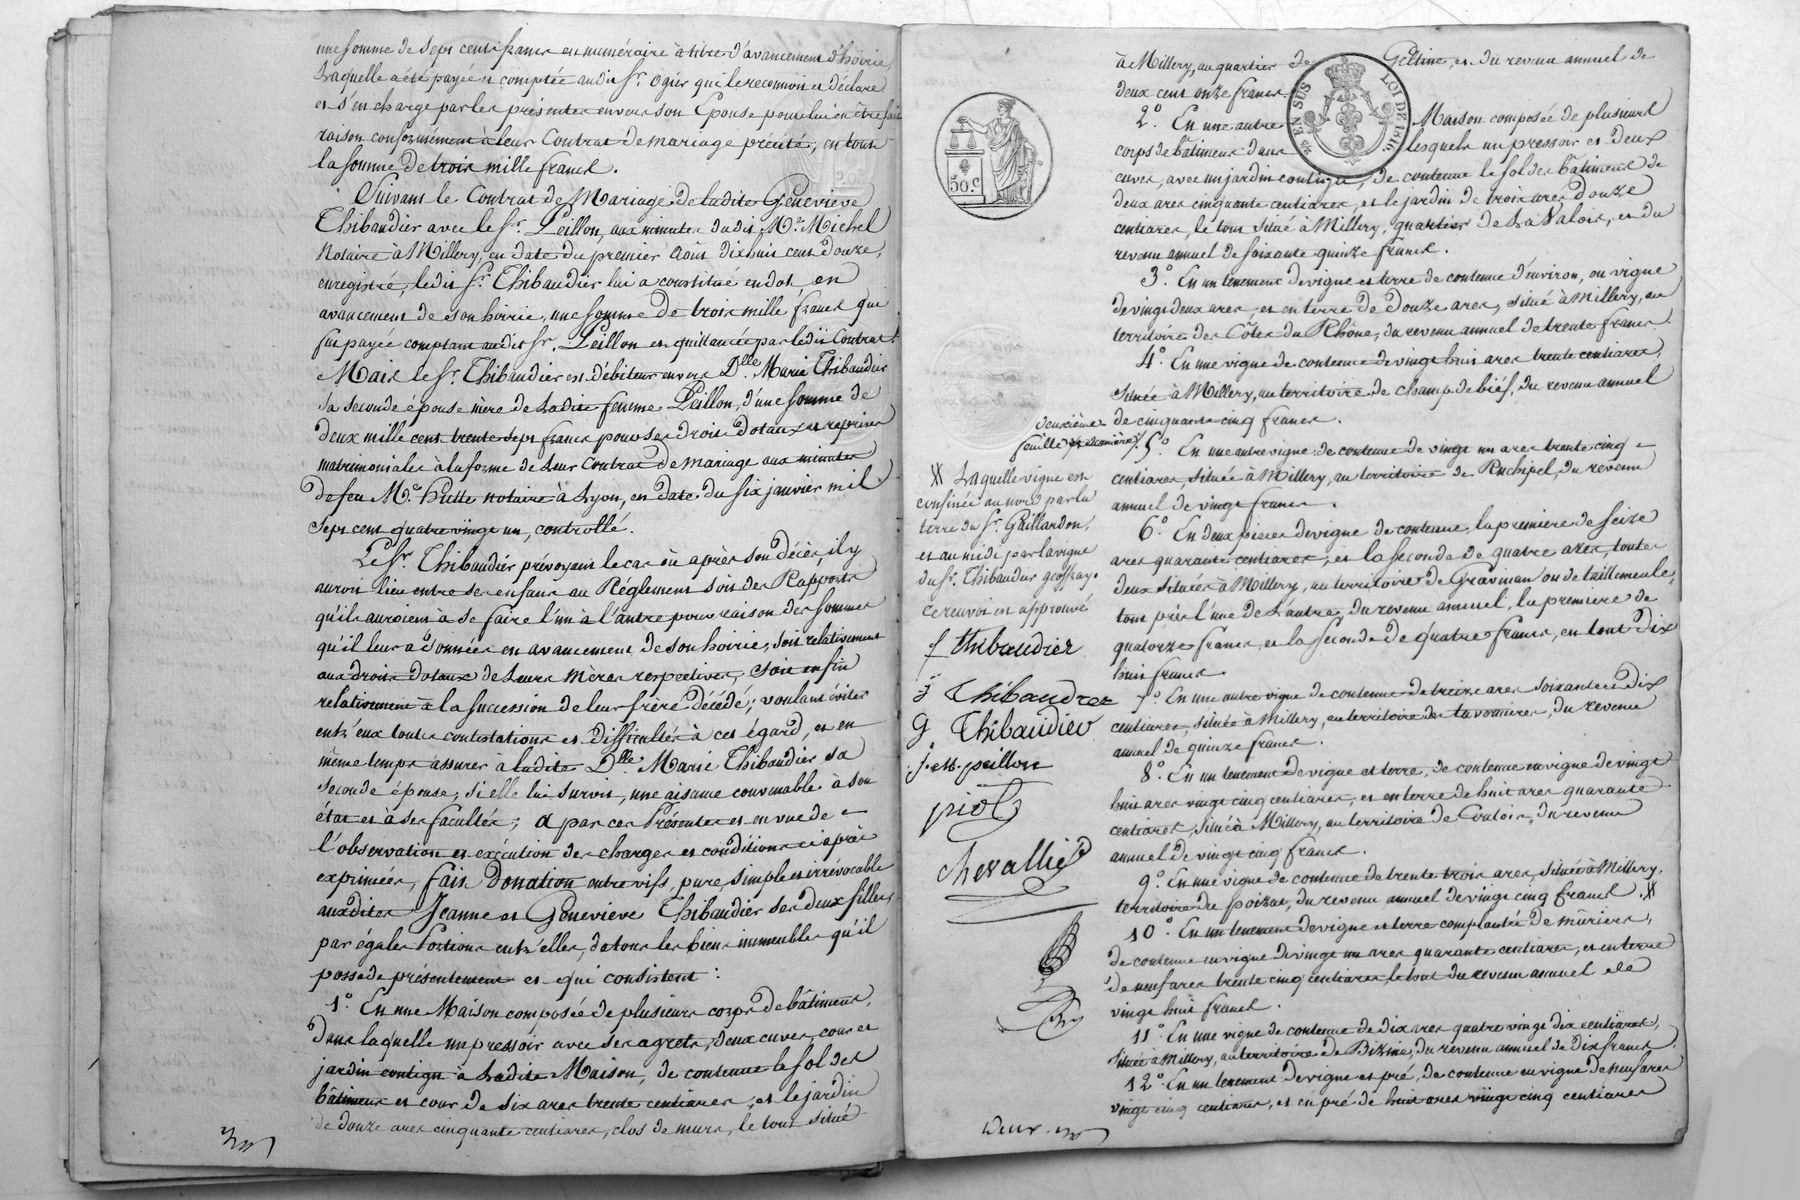 une somme de sept cents francs en numéraire à titre d'avancement d'hoirie,
Laquelle a été payée et comptée audit Sr. Ogier qui le reconnoit et déclare
et s'en charge par les présentes envers son Epouse pour lui en être fait
raison conformément à leur Contrat de mariage précité, en tout
la somme de trois mille francs.
Suivant le Contrat de Mariage de ladite Geneviève
Thibaudier avec le Sr. Peillon, aux minutes dudit Me. Michel
Notaire à Millery, en date du premier Août dix huit cent douze,
enregistré, ledit Sr. Thibaudier lui a constitué en dot, en
avancement de son hoirie, une somme de trois mille francs qui
fut payée comptant audit Sr. Peillon et quittancée par ledit Contrat.
Mais le Sr. Thibaudier est débiteur envers Dlle. Marie Thibaudier
sa seconde épouse mère de Ladite femme Peillon, d'une somme de
deux mille cent trente sept francs pour ses droits dotaux et reprises
matrimoniales à la forme de Leur Contrat de mariage aux minutes
de feu Me. hutte notaire à Lyon, en date du six janvier mil
sept cent quatre vingt un, controllé.
Le Sr. Thibaudier prévoyant le cas où après son décès, il y
auroit lieu entre ses enfans au Réglement soit des Rapports
qu'ils auroient à se faire l'un à l'autre pour raison des sommes
qu'il leur a données en avancement de son hoirie, soit relativement
aux droits dotaux de Leurs Mères respectives, soit enfin
relativement à la succession de leur frère décédé; voulant éviter
entr'eux toutes contestations et difficultés à cet égard, et en
même temps assurer à ladite Dlle. Marie Thibaudier sa
seconde épouse, si elle lui survit, une aisance convenable à son
état et à ses facultés; a par ces Présentes et en vue de
l'observation et exécution des charges et conditions ci après
exprimées, fait Donation entre vifs, pure, simple et irrévocable
auxdites Jeanne et Geneviève Thibaudier ses deux filles,
par égales Portions entr'elles, de tous les biens immeubles qu'il
possède présentement et qui consistent:
1o. En une Maison composée de plusieurs corps de bâtimens,
dans laquelle un pressoir avec ses agrets, deux cuves, cour et
jardin contigu à Ladite Maison, de contenue le sol des
bâtimens et cour de six ares trente centiares, et le jardin
de douze ares cinquante centiares, clos de murs, le tout situé
50.c
à Millery, au quartier de Geltine, et du revenu annuel de
deux cent onze francs.
EN SUS LOI DE 1816
2o. En une autre Maison composée de plusieurs
corps de bâtimens dans lesquels un pressoir et deux
cuves, avec un jardin contigu, de contenue le sol des bâtimens de
deux ares cinquante centiares, et le jardin de trois ares douze
centiares, le tout situé à Millery, quartier de La Valois, et du
revenu annuel de soixante quinze francs.
3o. En un tenement de vigne et terre de contenue d'environ, en vigne
de vingt deux ares, et en terre de douze ares, situé à Millery, au
territoire des Côtes du Rhône, du revenu annuel de trente francs.
4o. En une vigne de contenue de vingt huit ares trente centiares,
située à Millery, au territoire de champ de bief, du revenu annuel
de cinquante cinq francs.
deuxième
feuille et dernière
5o. En une autre vigne de contenue de vingt un ares trente cinq
centiares, située à Millery, au territoire de Ruchipel, du revenu
annuel de vingt francs.
6o. En deux pièces de vigne de contenue, la première de seize
ares quarante centiares, et la seconde de quatre ares, toutes
deux situées à Millery, au territoire de Gravinan ou de taillemeule,
tout près l'une de L'autre, du revenu annuel, la première de
quatorze francs, et la seconde de quatre francs, en tout dix
huit francs.
7o. En une autre vigne de contenue de treize ares soixante et dix
centiares, située à Millery, au territoire des tavernières, du revenu
annuel de quinze francs.
8o. En un tenement de vigne et terre, de contenue en vigne de vingt
huit ares vingt cinq centiares, et en terre de huit ares quarante
centiares, situé à Millery, au territoire de Coutoir, du revenu
annuel de vingt cinq francs.
9o. En une vigne de contenue de trente trois ares, située à Millery,
territoire du poizat, du revenu annuel de vingt cinq francs. #
10o. En un tenement de vigne et terre complantée de mûriers,
de contenue en vigne de vingt un ares quarante centiares, et en terre
de neuf ares trente cinq centiares, le tout du revenu annuel de
vingt huit francs.
11o. En une vigne de contenue de dix ares quatre vingt dix centiares,
située à Millery, au territoire de Bizine, du revenu annuel de dix francs.
12o. En un tenement de vigne et pré, de contenue en vigne de neuf ares
vingt cinq centiares, et en pré de huit ares vingt cinq centiares
# Laquelle vigne est
confinée au nord par la
terre du Sr. Gaillardon,
et au midi par la vigne
du Sr. Thibaudier geoffray.
Ce renvoi est approuvé
f thibaudier
j Thibaudier
g Thibaudier
j. m. peillon
piot
chevallier